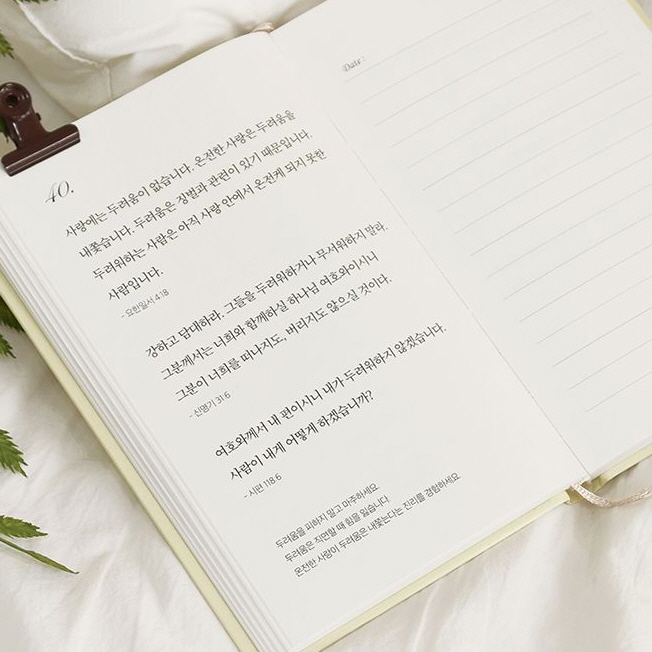 40.
사랑에는 두려움이 없습니다. 온전한 사랑은 두려움을
내쫓습니다. 두려움은 징벌과 관련이 있기 때문입니다.
두려워하는 사람은 아직 사랑 안에서 온전케 되지 못한
사람입니다.
- 요한일서 4:18
강하고 담대하라. 그들을 두려워하거나 무서워하지 말라.
그분께서는 너희와 함께하실 하나님 여호와이시니
그분이 너희를 떠나지도, 버리지도 않으실 것이다.
- 신명기 31:6
여호와께서 내 편이시니 내가 두려워하지 않겠습니다.
사람이 내게 어떻게 하겠습니까?
- 시편 118:6
두려움을 피하지 말고 마주하세요.
두려움은 직면할 때 힘을 잃습니다.
온전한 사랑이 두려움은 내쫓는다는 진리를 경험하세요
Date :